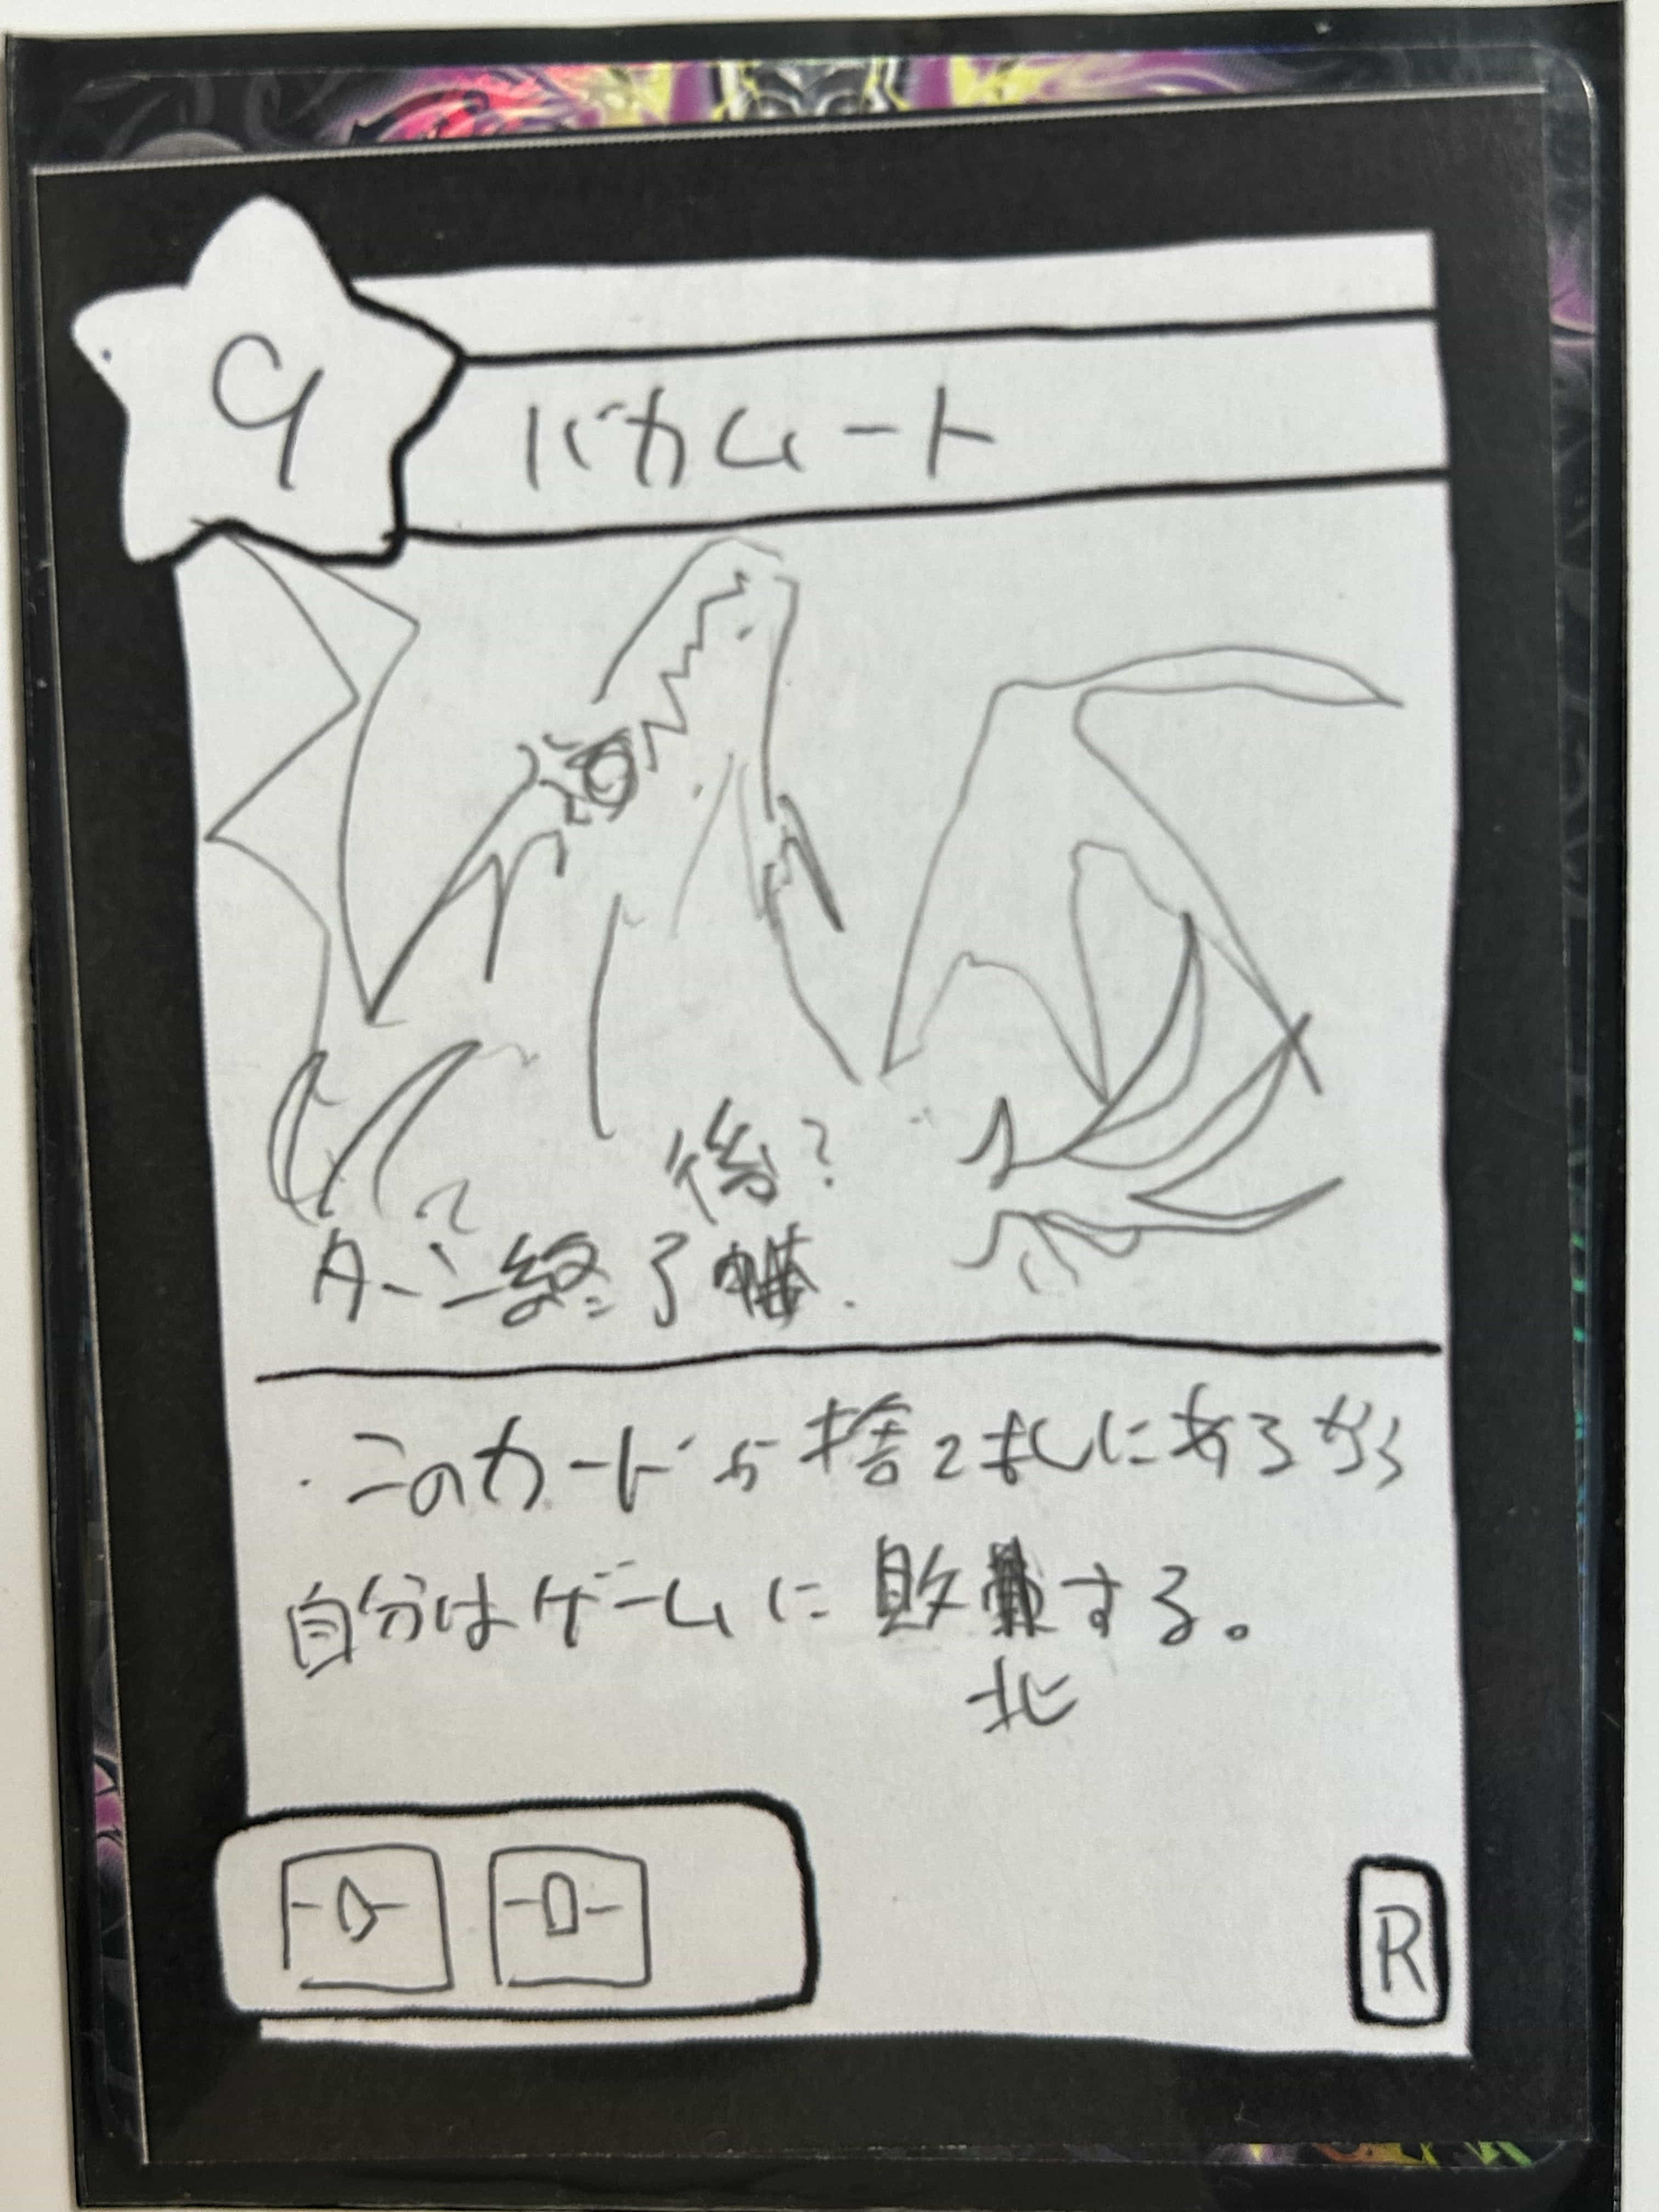 9
バカムート
後?
ターン終了
・このカードが捨て札にあるかぎり
自分はゲームに敗する。
北
R